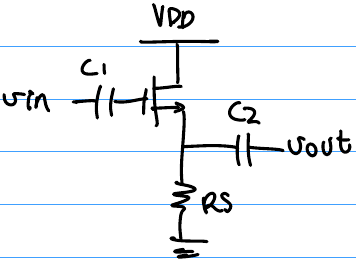 VDD
C1
vin
C2
vout
RS